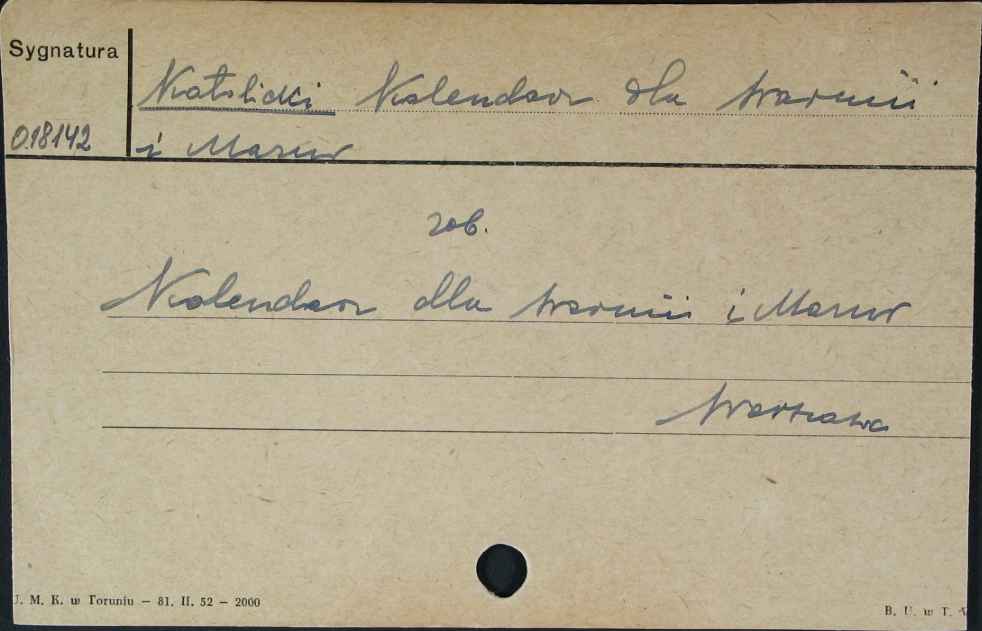 Sygnatura
Katolicki Kalendarz dla Warmii
018142
i Mazur
zob.
Kalendarz dla Warmii i Mazur
Warszawa
U. M. K. w Toruniu — 81. II. 52 — 2000
B. U. w T.